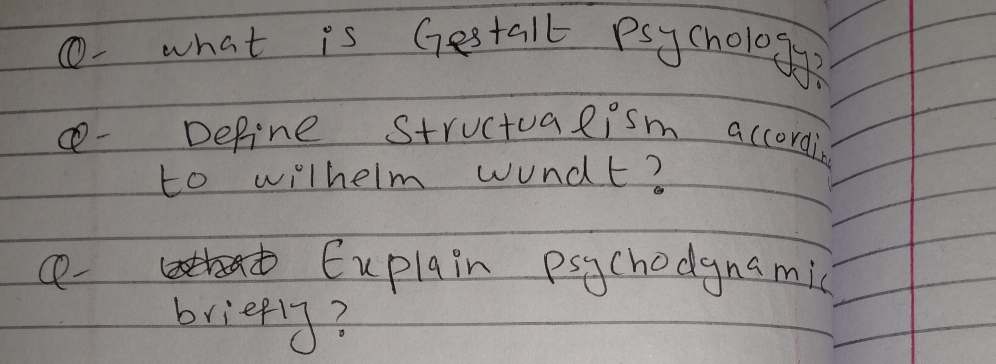 Q- what is Gestalt Psychology?
Q- Define Structualism accordin
to wilhelm wundt?
Q- Explain psychodynamic
briefly?